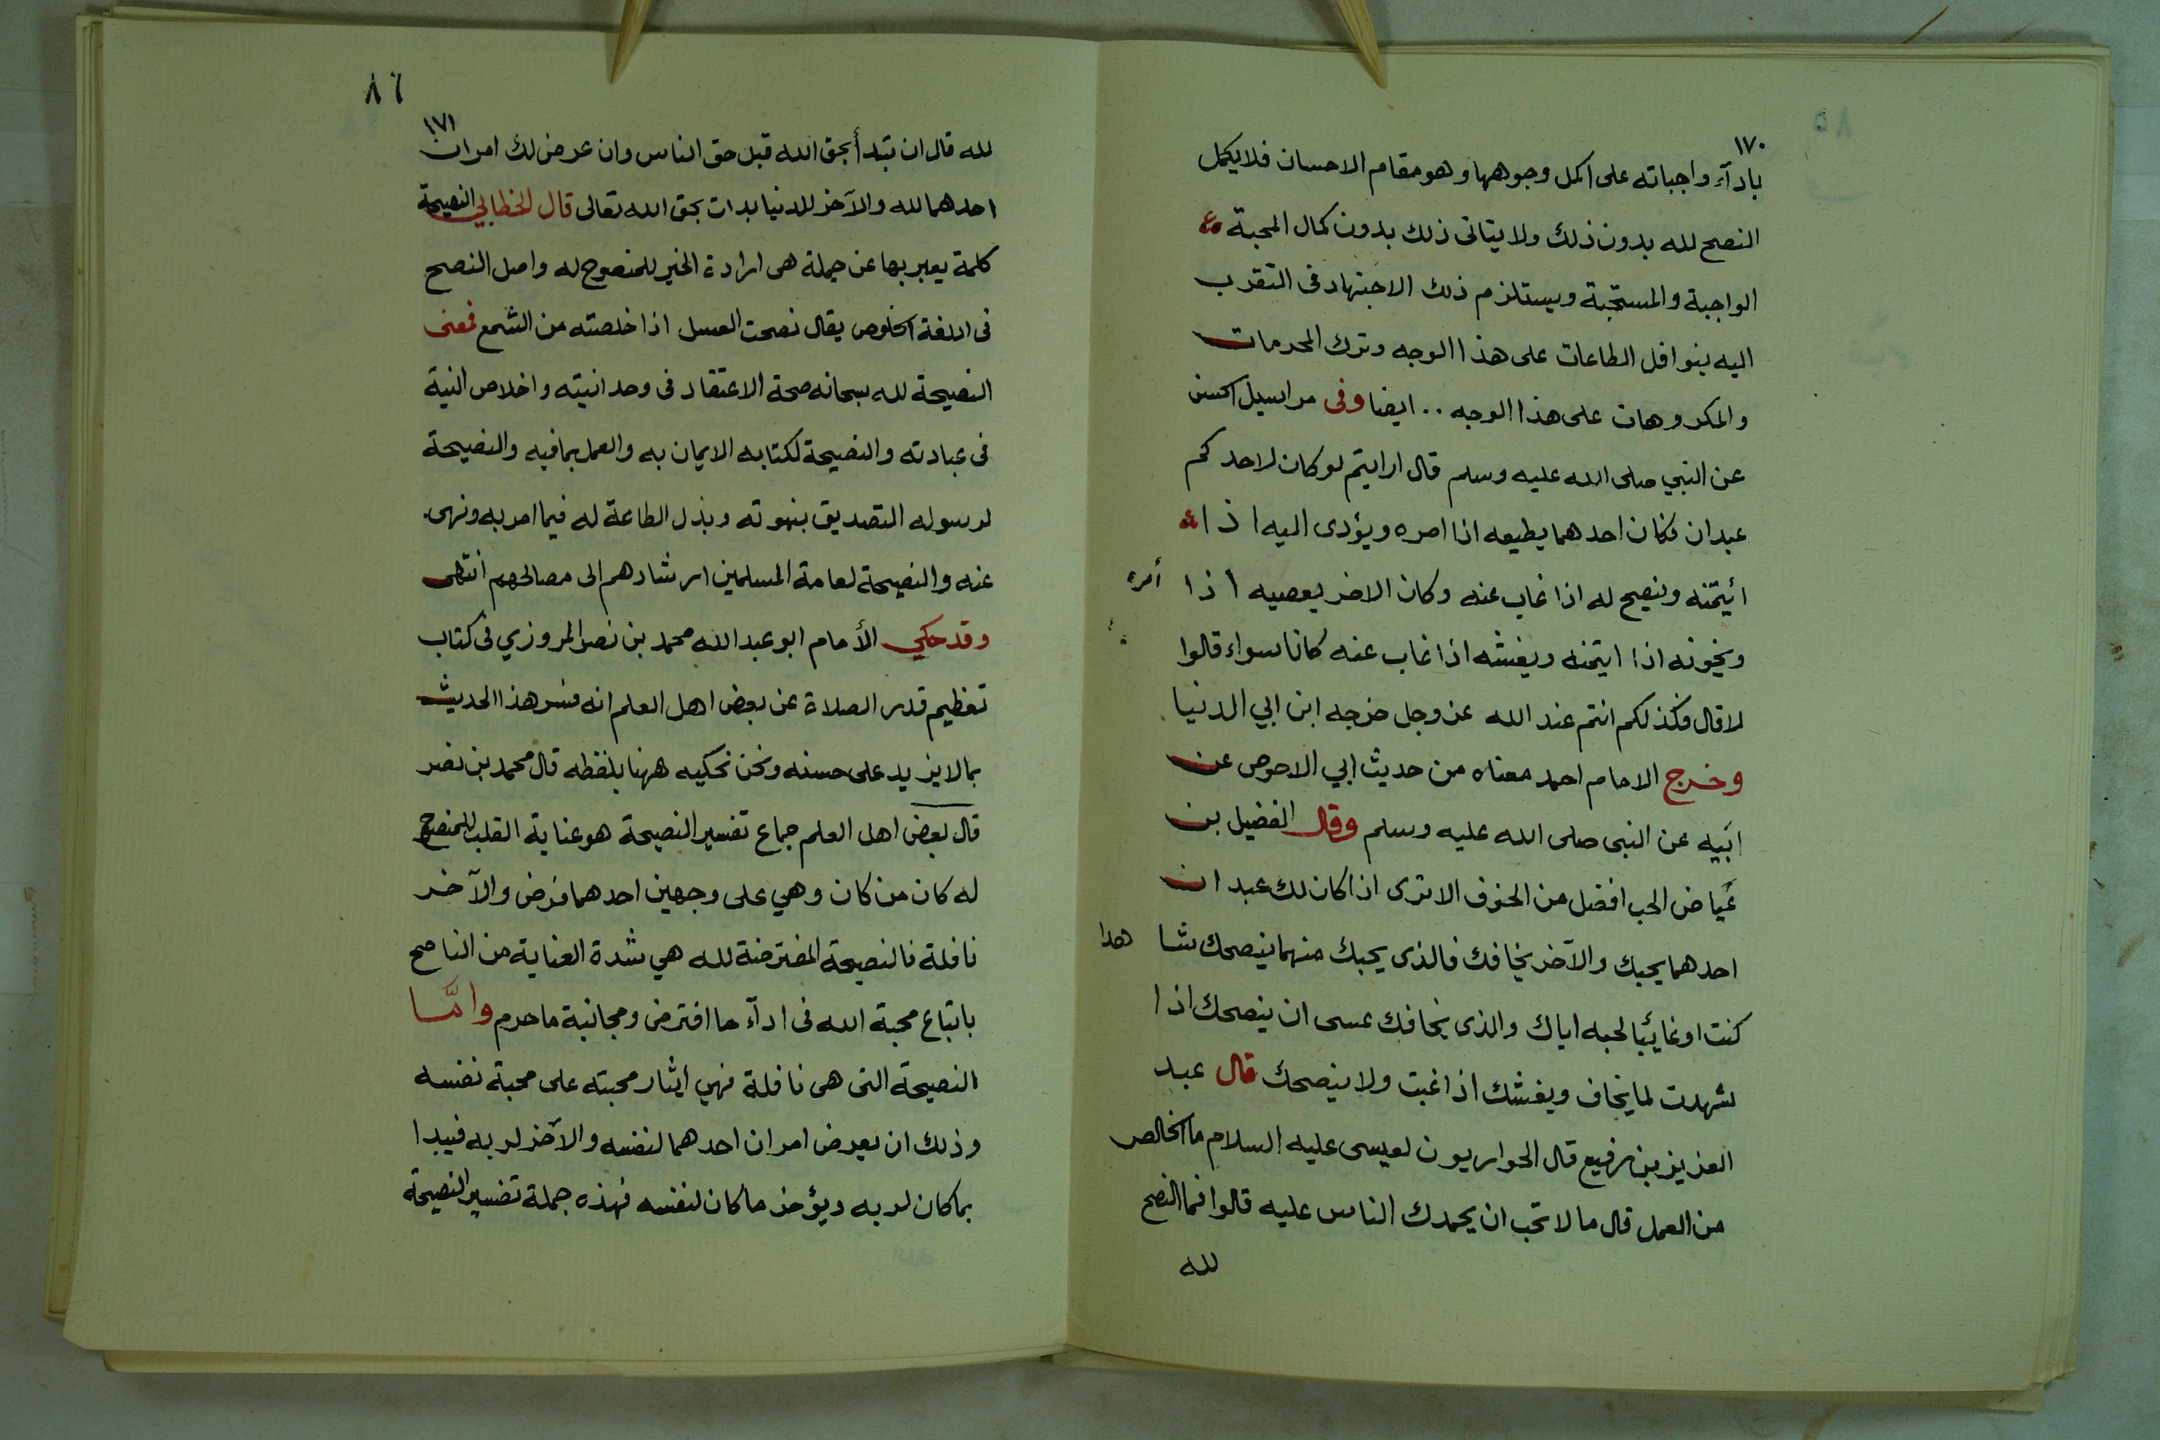 ١٧٠
بادآء واجباته على اكمل وجوهها وهو مقام الاحسان فلا يكمل
النصح لله بدون ذلك ولا يتاتى ذلك بدون كمال المحبة
الواجبة والمستحبة ويستلزم ذلك الاجتهاد في التقرب
اليه بنوافل الطاعات على هذا الوجه وترك المحرمات
والمكروهات على هذا الوجه .. ايضا وفى مراسيل الحسن
عن النبي صلى الله عليه وسلم قال ارايتم لو كان لاحدكم
عبدان فكان احدهما يطيعه اذا امره ويؤدى اليه اذا
ائيتمنه وينصح له اذا غاب عنه وكان الاخر يعصيه اذا أمره
ويخونه اذا ايتمنه ويغشه اذا غاب عنه كانا سواء قالوا
لا قال فكذلكم انتم عند الله عز وجل خرجه ابن ابي الدنيا
وخرج الامام احمد معناه من حديث ابي الاحوص عن
ابيه عن النبى صلى الله عليه وسلم وقال الفضيل بن
عياض الحب افضل من الخوف الا ترى اذا كان لك عبدان
احدهما يحبك والآخر يخافك فالذى يحبك منهما ينصحك شا هدا
كنت او غايئبا لحبه اياك والذى يخافك عسى ان ينصحك اذا
شهدت لما يخاف ويغشك اذا غبت ولا ينصحك قال عبد
العزيز بن رفيع قال الحواريون لعيسى عليه السلام ما الخالص
من العمل قال ما لا تحب ان يحمدك الناس عليه قالوا فما النصح
لله
٨٦
١٧١
لله قال ان تبدأ بحق الله قبل حق الناس وان عرض لك امران
احدهما لله والآخر للدنيا بدات بحق الله تعالى قال الخطابي النصيحة
كلمة يعبر بها عن جملة هى ارادة الخير للمنصوح له واصل النصح
فى اللغة الخلوص يقال نصحت العسل اذا خلصته من الشمع فمعنى
النصيحة لله سبحانه صحة الاعتقاد فى وحدانيته واخلاص النية
فى عبادته والنصيحة لكتابه الايمان به والعمل بما فيه والنصيحة
لرسوله التصديق بنبوته وبذل الطاعة له فيما امر به ونهى
عنه والنصيحة لعامة المسلمين ارشادهم الى مصالحهم انتهى
وقد حكي الأمام ابو عبد الله محمد بن نصر المروزي فى كتاب
تعظيم قدر الصلاة عن بعض اهل العلم انه فسر هذا الحديث
بما لا يزيد على حسنه ونحن نحكيه ههنا بلفظه قال محمد بن نصر
قال بعض اهل العلم جماع تفسير النصيحة هو عناية القلب للمنصوح
له كان من كان وهي على وجهين احدهما فرض والآخر
نافلة فالنصيحة المفترضة لله هي شدة العناية من الناصح
باتباع محبة الله فى ادآء ما افترض ومجانبة ما حرم وامّا
النصيحة التى هى نافلة فهي ايثار محبته على محبة نفسه
وذلك ان يعرض امران احدهما لنفسه والآخر لربه فيبدا
بما كان لربه ويؤخر ما كان لنفسه فهذه جملة تفسير النصيحة